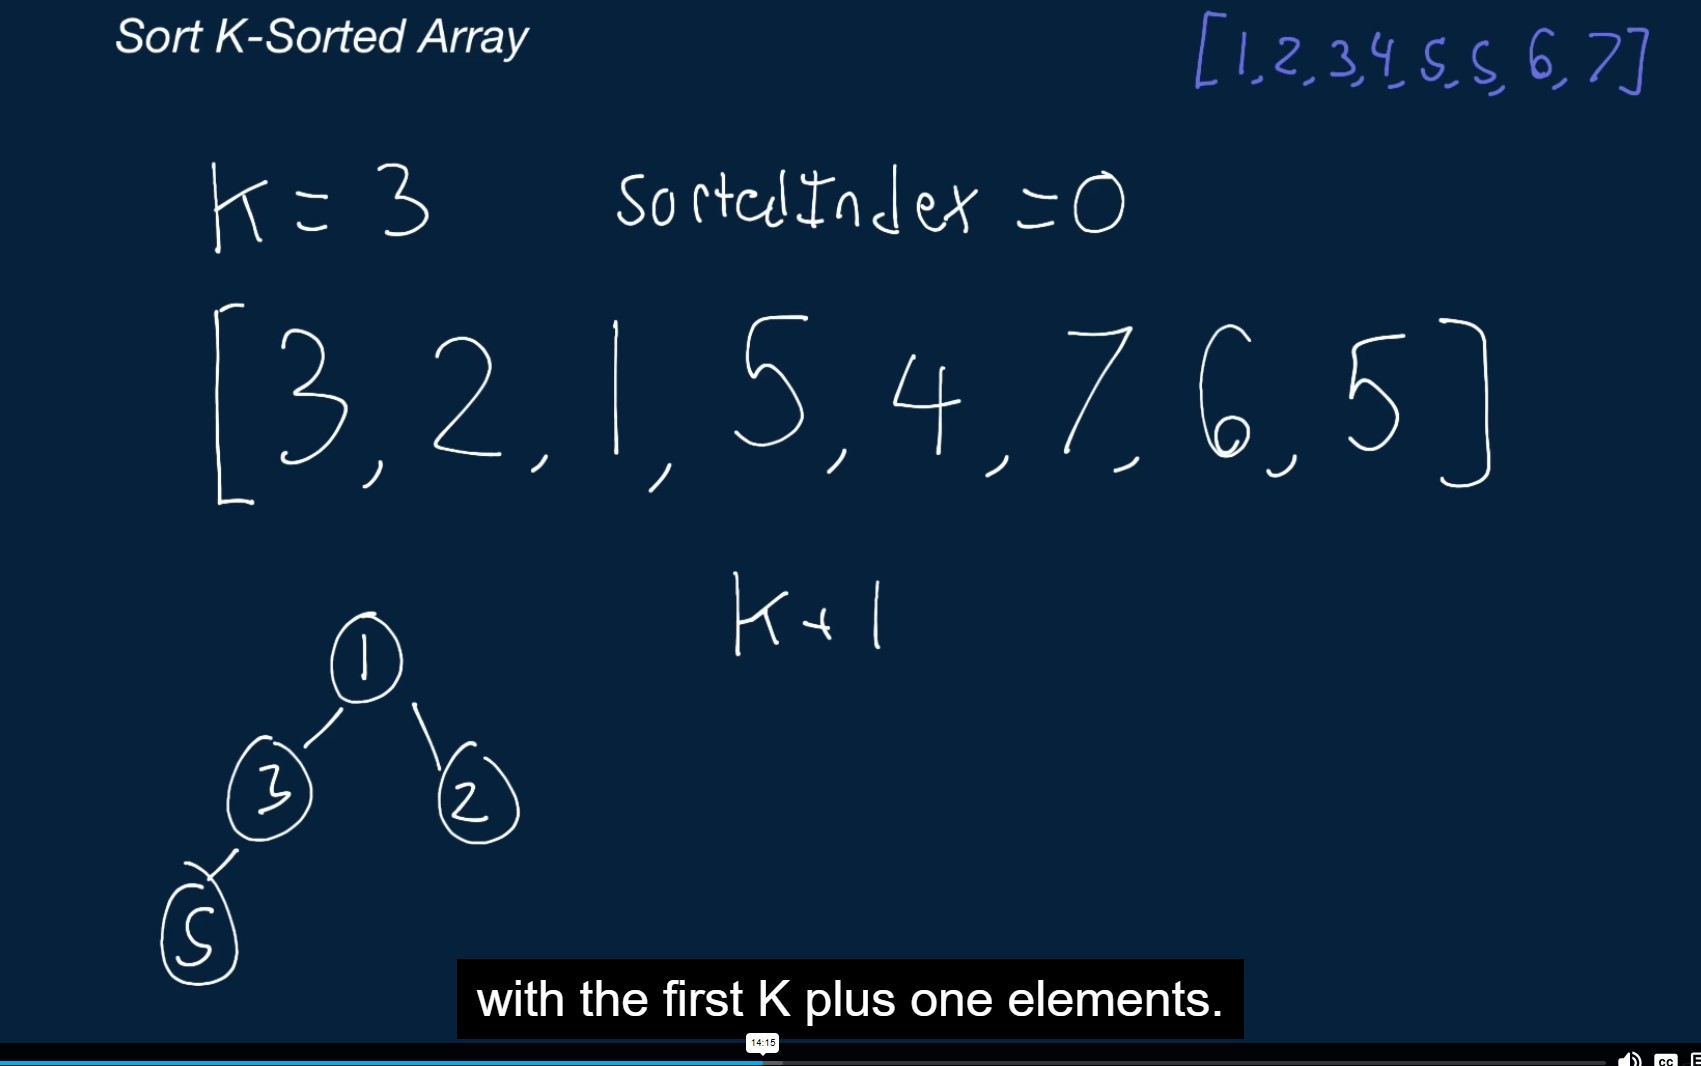 Sort K-Sorted Array
[1,2,3,4,5,5,6,7]
K=3 sortedIndex=0
[3,2,1,5,4,7,6,5]
K+1
1
3 2
5
with the first K plus one elements.
14:15
CC